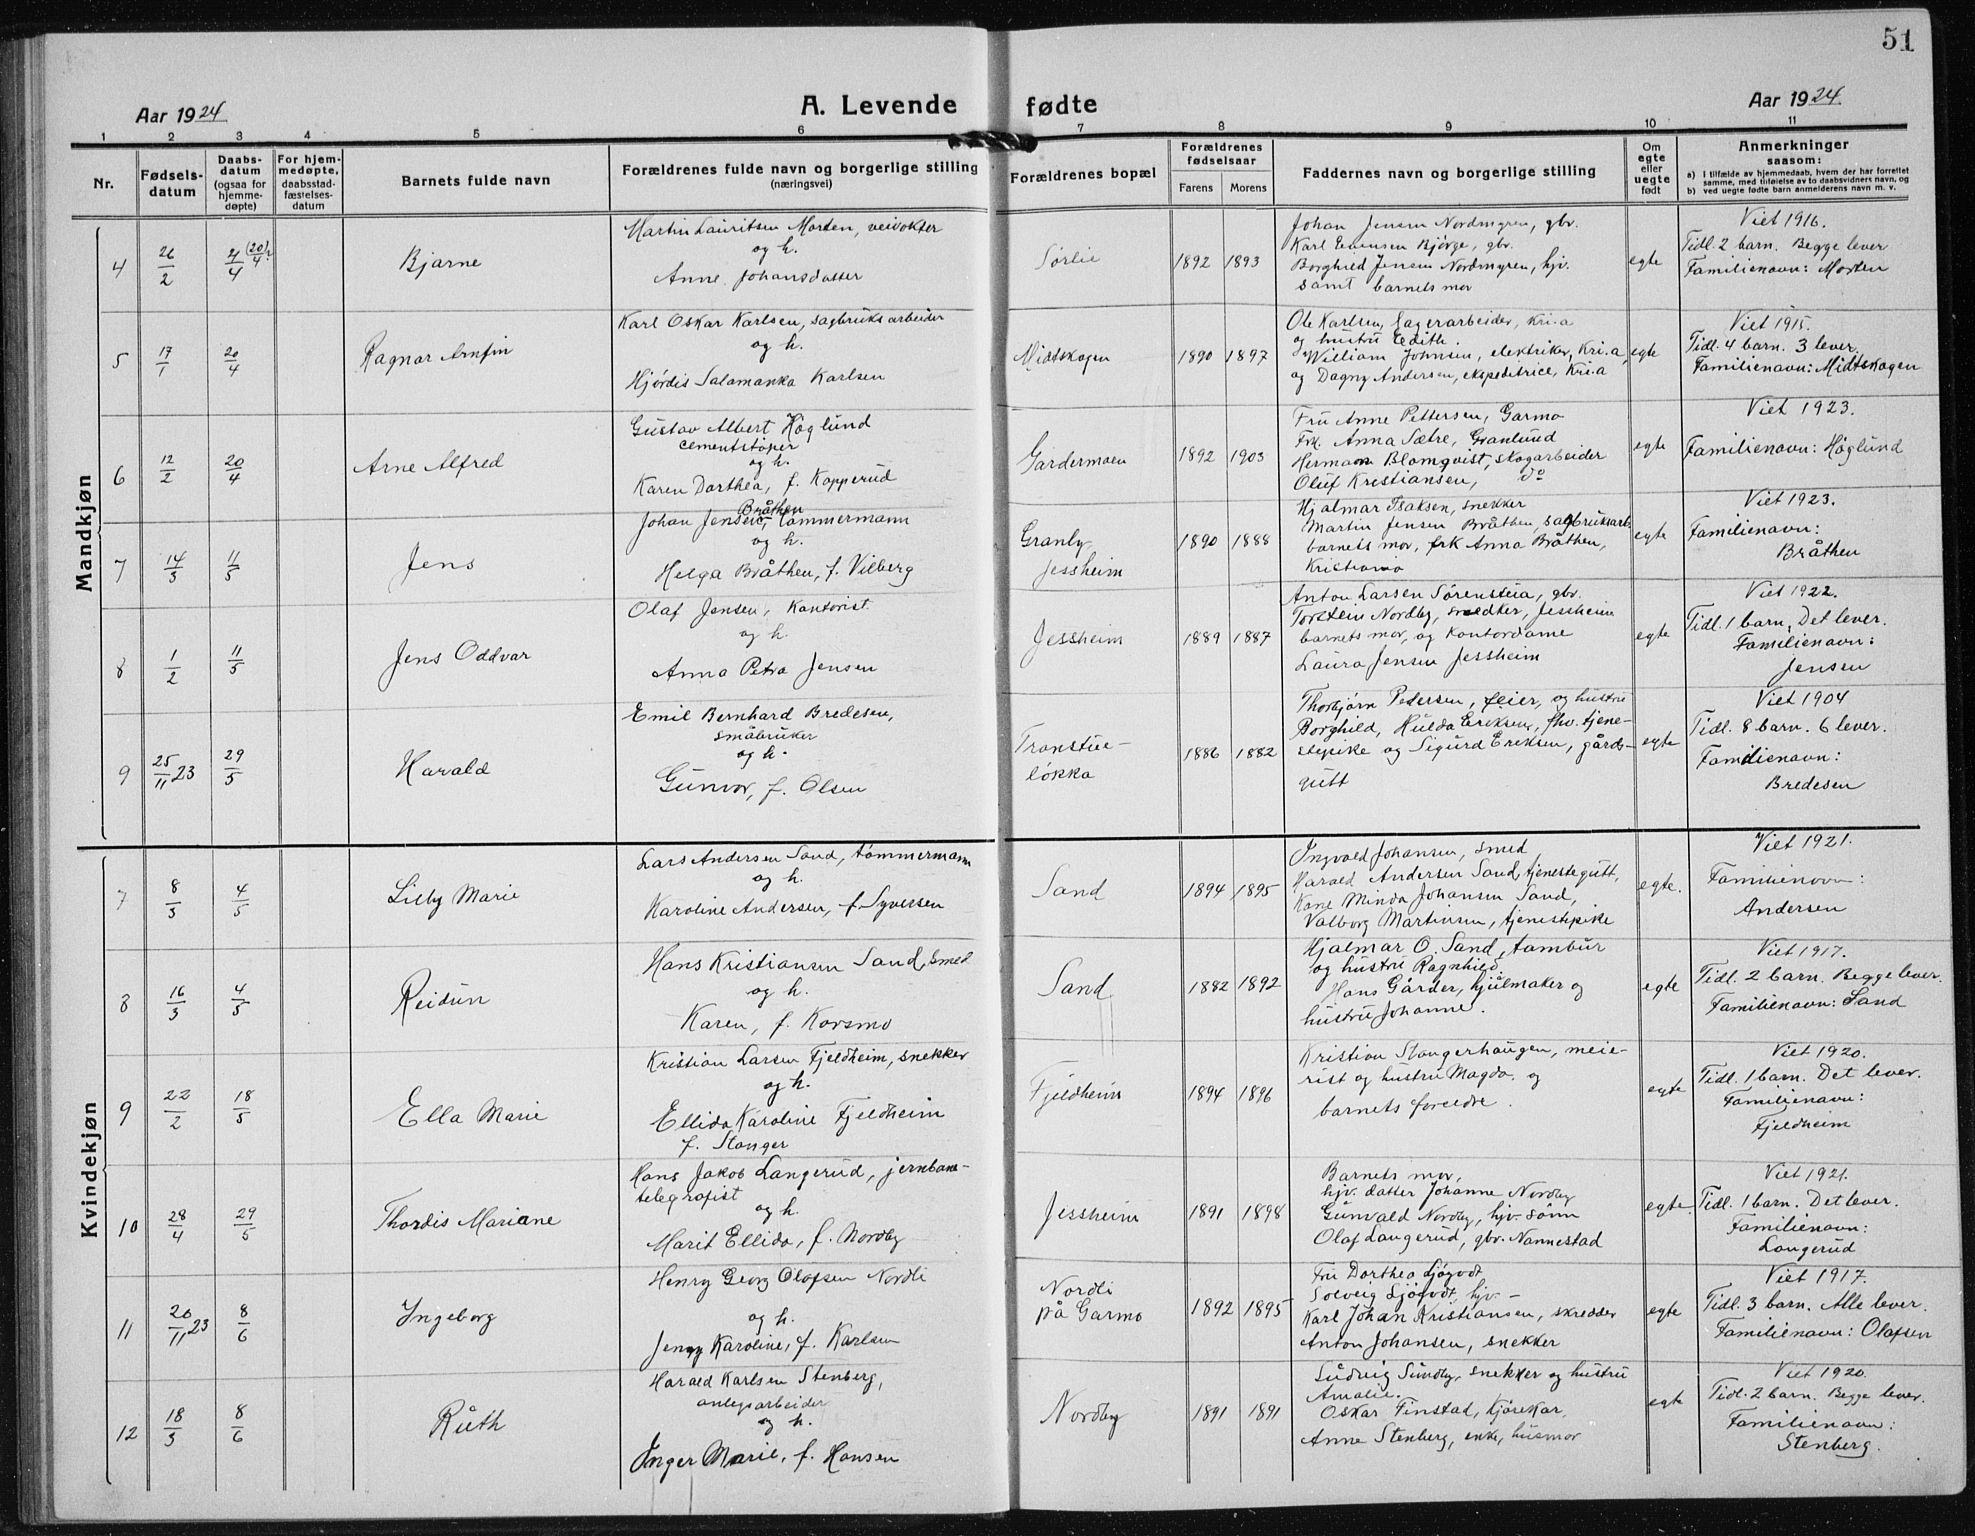 51
Aar 1924
A. Levende fødte
Aar 1924
1 2 3 4 5 6 7 8 9 10 11
Nr.
Fødsels-
datum
Daabs-
datum
(ogsaa for
hjemme-
døpte)
For hjem-
medøpte,
daabsstad-
fæstelses-
datum
Barnets fulde navn
Forældrenes fulde navn og borgerlige stilling
(næringsvei)
Forældrenes bopæl
Forældrenes
fødselsaar
Farens Morens
Faddernes navn og borgerlige stilling
Om
egte
eller
uegte
født
Anmerkninger
saasom:
a) I tilfælde av hjemmedaab, hvem der har forrettet
samme, med tilføielse av to daabsvidners navn, og
b) ved uegte fødte barn anmelderens navn m. v.
Mandkjøn
4
26/2
4/4 (20/4)?
Bjarne
Martin Lauritsen Morten, veivokter
og h.
Anne Johansdatter
Sørlie
1892 1893
Johan Jensen Nordmyren, gbr.
Karl Evensen Bjørge, gbr.
Borghild Jensen Nordmyren, hjv.
samt barnets mor
egte
Viet 1916.
Tidl. 2 barn. Begge lever
Familienavn: Morten
5
17/1
20/4
Ragnar Arnfin
Karl Oskar Karlsen, sagbruksarbeider
og h.
Hjørdis Salamanka Karlsen
Midtskogen
1890 1897
Ole Karlsen, lagerarbeider, Kri.a
og hustru Edith.
William Johnsen, elektriker, Kri.a,
og Dagny Andersen, ekspeditrice, Kri.a
egte
Viet 1915.
Tidl. 4 barn. 3 lever.
Familienavn: Midtskogen
6
12/2
20/4
Arne Alfred
Gustav Albert Höglund
cementstøper
og h.
Karen Dorthea, f. Kopperud
Gardermoen
1892 1903
Fru Anne Pettersen, Garmo
Frk. Anna Sætre, Granlund
Hermann Blomqvist, skogarbeider
Oluf Kristiansen, do
egte
Viet 1923.
Familienavn: Höglund
7
14/3
11/5
Jens
Bråthen
Johan Jensen, tømmermann
og h.
Helga Bråthen, f. Vilberg
Granly
Jessheim
1890 1888
Hjalmar Isaksen, snekker
Martin Jensen Bråthen, sagbruksarb.
barnets mor, frk Anna Bråthen,
Kristiania
egte
Viet 1923.
Familienavn:
Bråthen
8
1/2
11/5
Jens Oddvar
Olaf Jensen, kontorist
og h.
Anna Petra Jensen
Jessheim
1889 1887
Anton Larsen Sørensteia, gbr.
Torstein Nordby, snedker, Jessheim
barnets mor, og kontordame
Laura Jensen Jessheim
egte
Viet 1922.
Tidl. 1 barn, Det lever.
Familienavn:
Jensen
9
25/11 23
29/5
Harald
Emil Bernhard Bredesen,
småbruker
og h.
Gunvor, f. Olsen
løkka
1886 1882
Thorbjørn Pedersen, feier, og hustru
Borghild, Hulda Eriksen, fhv. tjene-
stepike og Sigurd Eriksen, gårds-
gutt
egte
Viet 1904
Tidl. 8 barn. 6 lever.
Familienavn:
Bredesen
Kvindekjøn
7
8/3
4/5
Lilly Marie
Lars Andersen Sand, tømmermann
og h.
Karoline Andersen, f. Syversen
Sand
1894 1895
Ingvald Johansen, smed
Harald Andersen Sand, tjenestegutt,
Kone Minda Johansen Sand,
Valborg Martinsen, tjenestepike
egte.
Viet 1921.
Familienavn:
Andersen
8
16/3
4/5
Reidun
Hans Kristiansen Sand, smed
og h.
Karen, f. Korsmo
Sand
1882 1892
Hjalmar O. Sand, tambur
og hustru Ragnhild.
Hans Gårder, hjulmaker og
hustru Johanne.
egte
Viet 1917.
Tidl. 2 barn. Begge lever.
Familienavn: Sand
9
22/2
18/5
Ella Marie
Kristian Larsen Fjeldheim, snekker
og h.
Ellida Karoline Fjeldheim
f. Stanger
Fjeldheim
1894 1896
Kristian Stangerhaugen, meie-
rist og hustru Magda. og
barnets foreldre.
egte
Viet 1920.
Tidl. 1 barn. Det lever.
Familienavn:
Fjeldheim
10
28/4
29/5
Thordis Mariane
Hans Jakob Langerud, jernbane-
telegrafist
og h.
Marit Ellida, f. Nordby
Jessheim
1891 1898
Barnets mor,
hjv. datter Johanne Nordby
Gunvald Nordby, hjv. sønn
Olaf Langerud, gbr. Nannestad
egte.
Viet 1921.
Tidl. 1 barn. Det lever.
Familienavn:
Langerud
11
20/11 23
8/6
Ingeborg
Henry Georg Olafsen Nordli
og h.
Jenny Karoline, f. Karlsen
Nordli
på Garmo
1892 1895
Fru Dorthea Sjøgvdt
Solveig Sjøgvdt, hjv.-
Karl Johan Kristiansen, skredder
Anton Johansen, snekker
egte
Viet 1917.
Tidl. 3 barn. Alle lever.
Familienavn: Olafsen
12
18/3
8/6
Ruth
Harald Karlsen Stenberg,
anlegsarbeider
og h.
Inger Marie, f. Hansen
Nordby
1891 1891
Ludvig Sundby, snekker og hustru
Amalie.
Oskar Finstad, kjørekar,
Anne Stenberg, enke, husmor
egte
Viet 1920.
Tidl. 2 barn. Begge lever.
Familienavn:
Stenberg.